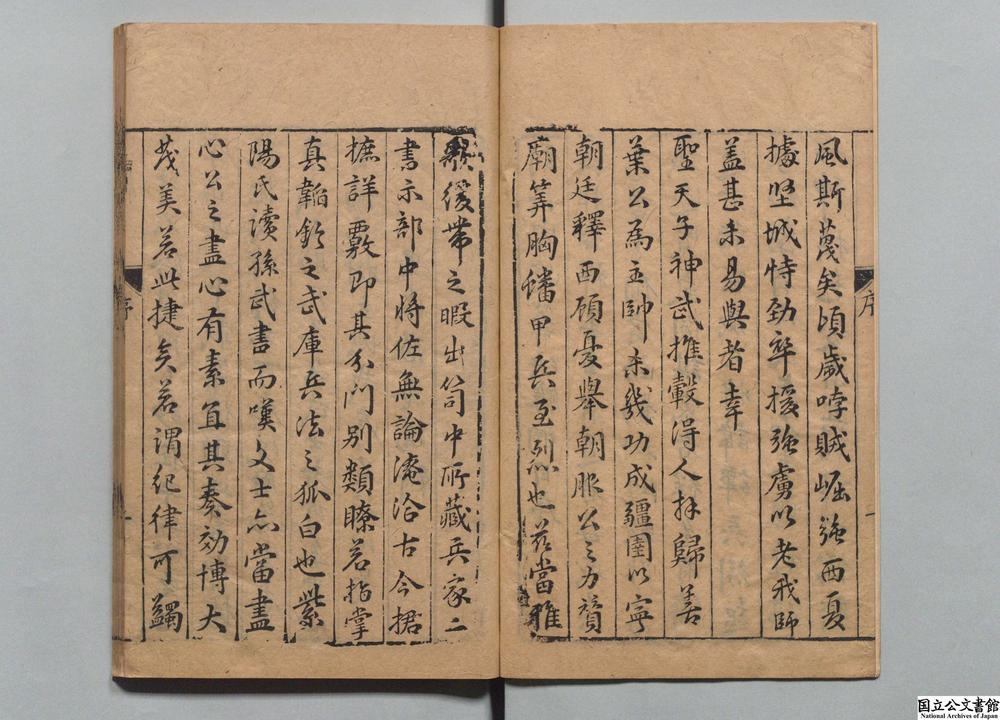 風斯蔑矣頃歲哱賊崛强西夏
據堅城恃勁卒援強虜以老我師
盖甚未易與者幸
聖天子神武推轂得人拜歸善
葉公爲主帥未幾功成疆圉以寧
朝廷釋西顧憂舉朝服公之力贊
廟筭胸蟠甲兵至烈也茲當雅
歌緩帶之暇出笥中所藏兵家二
書示部中將佐無論淹洽古今捃
摭詳覈即其分門別類瞭若指掌
真韜鈐之武庫兵法之狐白也紫
陽氏讀孫武書而嘆文士亦當盡
心公之盡心有素宜其奏効博大
茂美若此捷矣若謂紀律可蠲
序
一
序
国立公文書館
National Archives of Japan